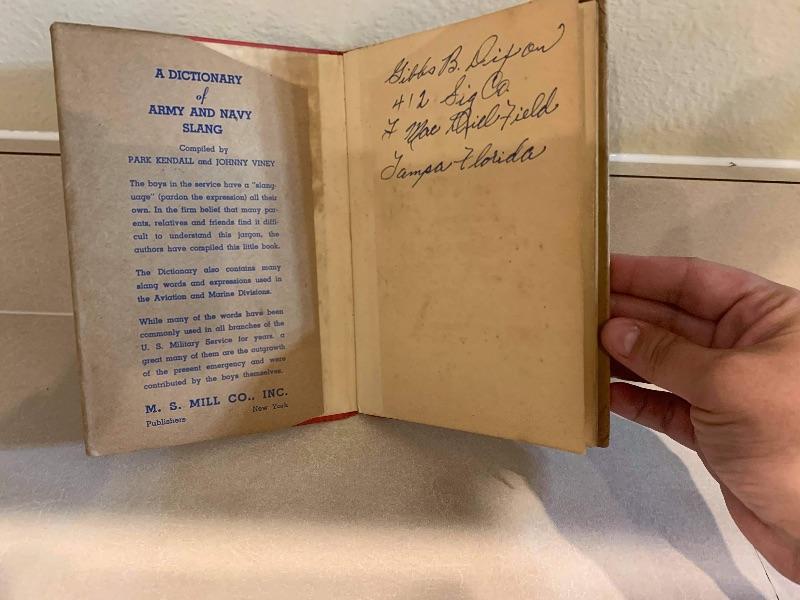 A DICTIONARY
of
ARMY AND NAVY
SLANG
Compiled by
PARK KENDALL and JOHNNY VINEY
The boys in the service have a "slang-
uage" (pardon the expression) all their
own. In the firm belief that many par-
ents, relatives and friends find it diffi-
cult to understand this jargon, the
authors have compiled this little book.
The Dictionary also contains many
slang words and expressions used in
the Aviation and Marine Divisions.
While many of the words have been
commonly used in all branches of the
U. S. Military Service for years, a
great many of them are the outgrowth
of the present emergency and were
contributed by the boys themselves.
M. S. MILL CO., INC.
Publishers New York
Gibbs B. Dixon
412 Sig Co.
Mac Dill Field
Tampa Florida